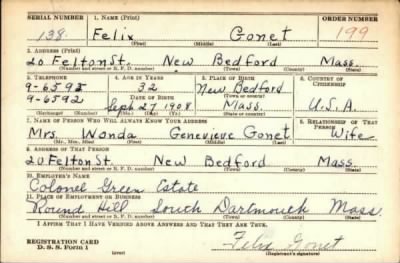 SERIAL NUMBER 1. NAME (Print) ORDER NUMBER
138 Felix Gonet 199
(First) (Middle) (Last)
2. ADDRESS (Print)
20 Felton St. New Bedford Mass.
(Number and street or R. F. D. number) (Town) (County) (State)
3. TELEPHONE 4. AGE IN YEARS 5. PLACE OF BIRTH 6. COUNTRY OF CITIZENSHIP
9-6595 32 New Bedford
DATE OF BIRTH (Town or county)
9-6592 Sept 27 1908 Mass. U.S.A.
(Exchange) (Number) (Mo.) (Day) (Yr.) (State or country)
7. NAME OF PERSON WHO WILL ALWAYS KNOW YOUR ADDRESS 8. RELATIONSHIP OF THAT PERSON
Mrs. Wanda Genevieve Gonet Wife
(Mr., Mrs., Miss) (First) (Middle) (Last)
9. ADDRESS OF THAT PERSON
20 Felton St. New Bedford Mass.
(Number and street or R. F. D. number) (Town) (County) (State)
10. EMPLOYER'S NAME
Colonel Green Estate
11. PLACE OF EMPLOYMENT OR BUSINESS
Round Hill South Dartmouth Mass.
(Number and street or R. F. D. number) (Town) (County) (State)
I AFFIRM THAT I HAVE VERIFIED ABOVE ANSWERS AND THAT THEY ARE TRUE.
REGISTRATION CARD
D. S. S. Form 1 (over) Felix Gonet
(Registrant's signature)